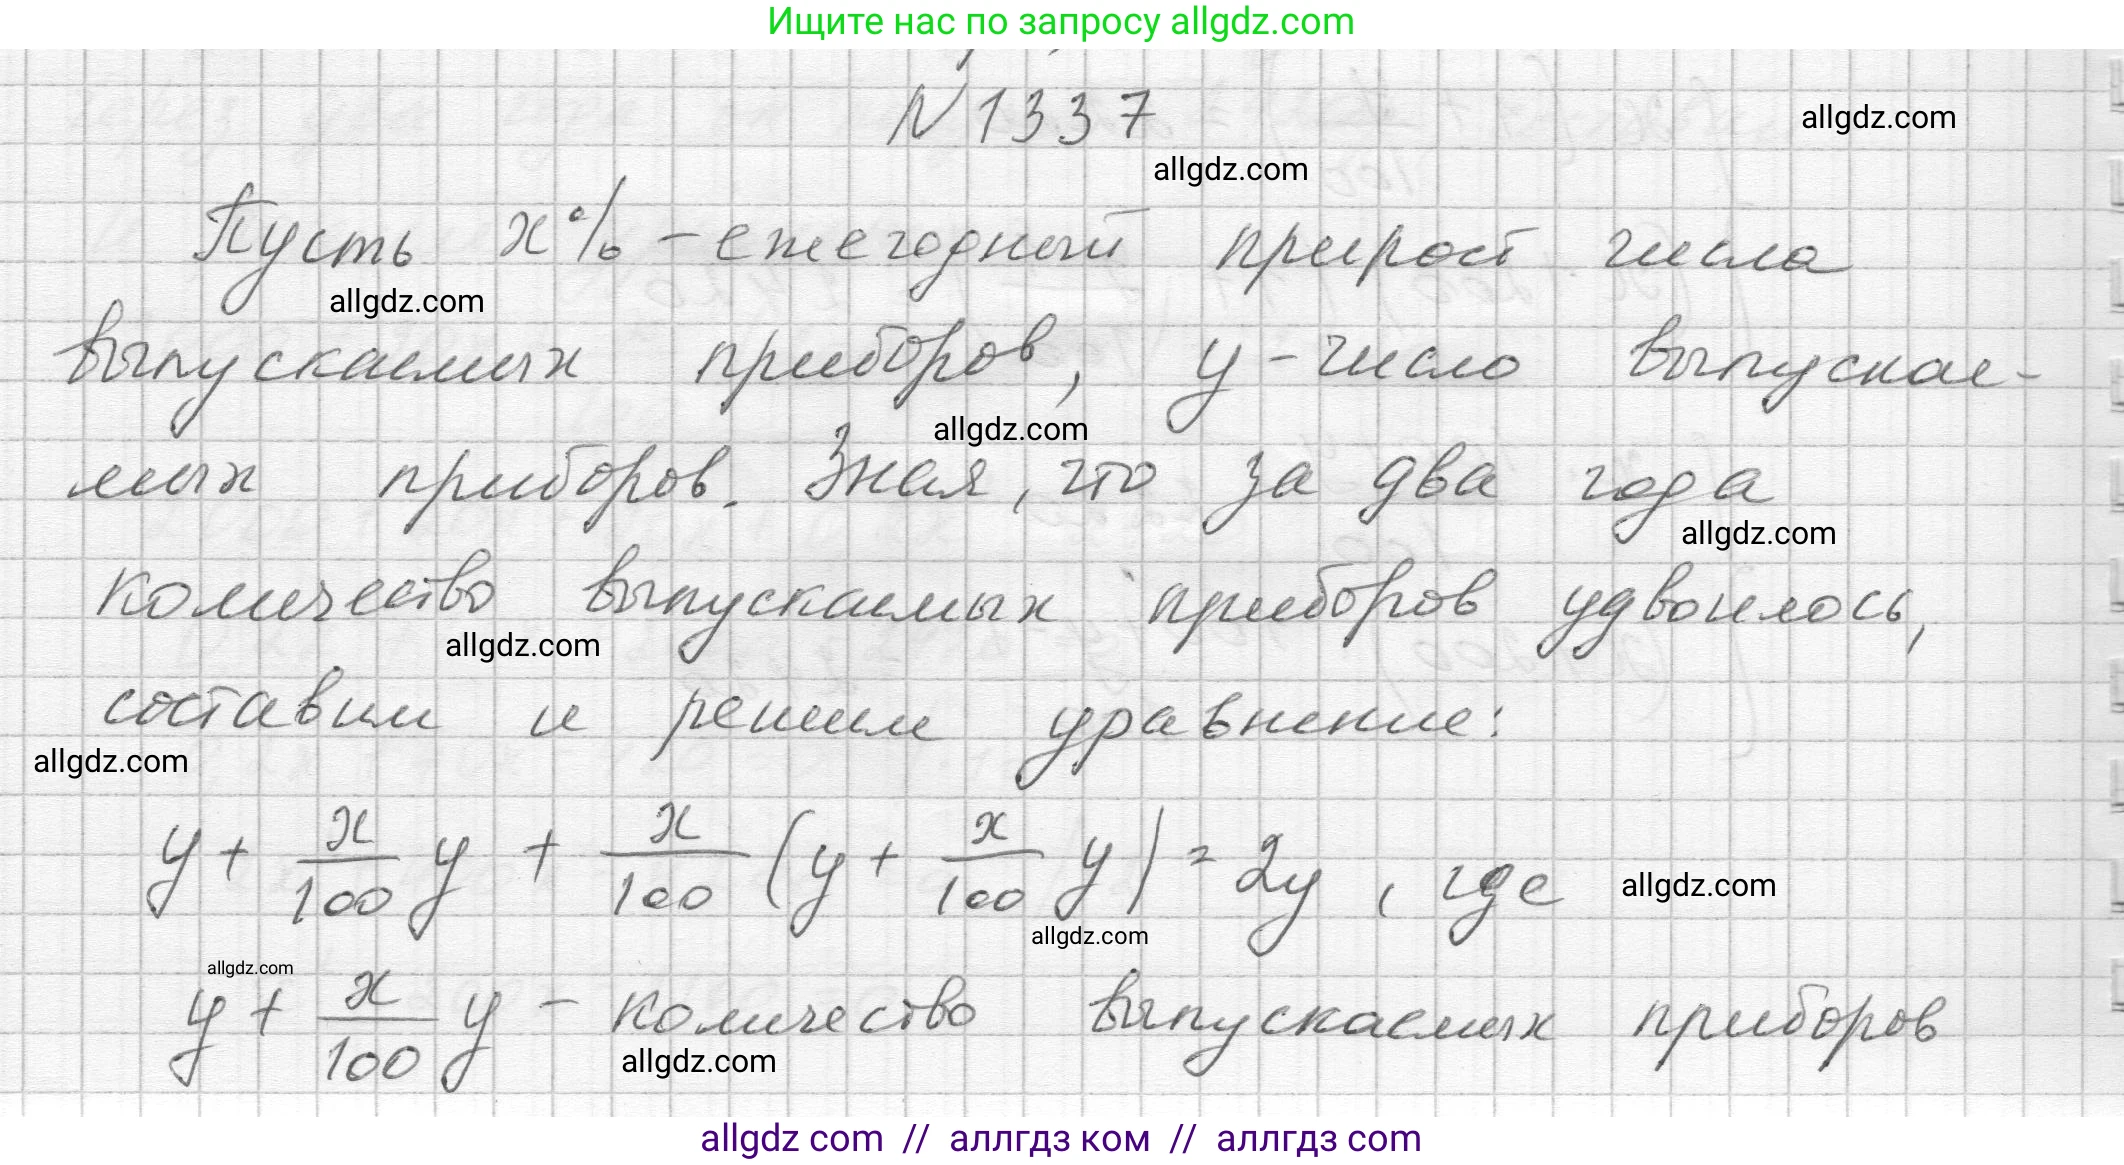 Ищите нас по запросу allgdz.com
N 1337
allgdz.com
allgdz.com
Пусть x% - ежегодный прирост числа
allgdz.com
выпускаемых приборов, y - число выпускае-
allgdz.com
мых приборов. Зная, что за два года
allgdz.com
количество выпускаемых приборов удвоилось,
allgdz.com
составим и решим уравнение:
allgdz.com
y + x/100 y + x/100 (y + x/100 y) = 2y, где
allgdz.com
allgdz.com
allgdz.com
y + x/100 y - количество выпускаемых приборов
allgdz.com
allgdz com // аллгдз ком // аллгдз com